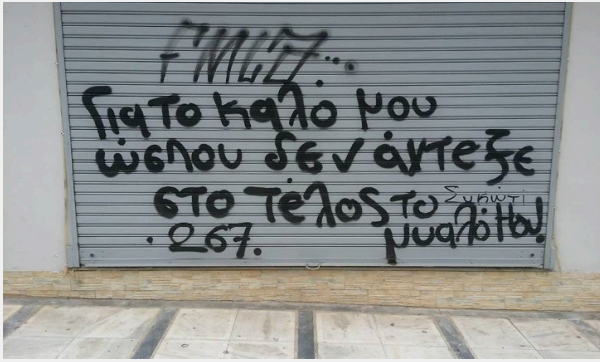 Για το καλο μου
ωσπου δεν άντεξε
στο τέλος το Συκώτι
.267. μυαλό μου!